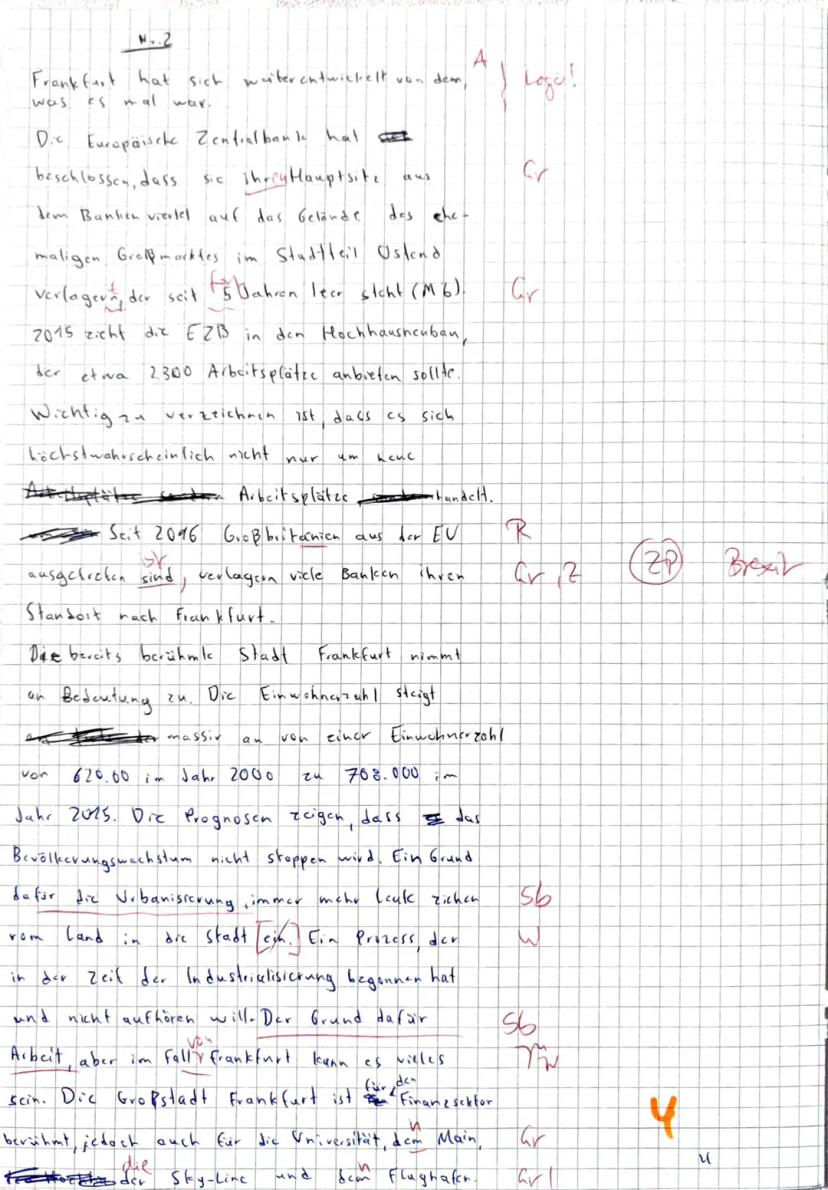 Nr. 2
Frankfurt hat sich weiterentwickelt von dem, A Logo!
was es mal war.
Die Europäische Zentralbank hat
beschlossen, dass sie ihren Hauptsitz aus Gr
dem Bankenviertel auf das Gelände des ehe-
maligen Großmarktes im Stadtteil Ostend
verlagern, der seit 5 Jahren leer steht (M6). Gr
2015 zieht die EZB in den Hochhausneubau,
der etwa 2300 Arbeitsplätze anbieten sollte.
Wichtig zu verzeichnen ist, dass es sich
höchstwahrscheinlich nicht nur um neue
Arbeitsplätze handelt.
Seit 2016 Großbritanien aus der EU R
ausgetreten sind, verlagern viele Banken ihren Gr, Z ZP Brexit
ist
Standort nach Frankfurt.
Die bereits berühmte Stadt Frankfurt nimmt
an Bedeutung zu. Die Einwohnerzahl steigt
massiv an von einer Einwohnerzahl
von 620.00 im Jahr 2000 zu 708.000 im
Jahr 2015. Die Prognosen zeigen, dass das
Bevölkerungswachstum nicht stoppen wird. Ein Grund
dafür die Urbanisierung, immer mehr Leute ziehen Sb
vom Land in die Stadt [ein.] Ein Prozess, der W
in der Zeit der Industrialisierung begonnen hat
und nicht aufhören will. Der Grund dafür Sb
Arbeit, aber im Fall von Frankfurt kann es vieles
sein. Die Großstadt Frankfurt ist für den Finanzsektor
berühmt, jedoch auch für die Universität, dem Main, Gr
n
der Sky-Line und dem Flughafen. Gr
die n
4
4